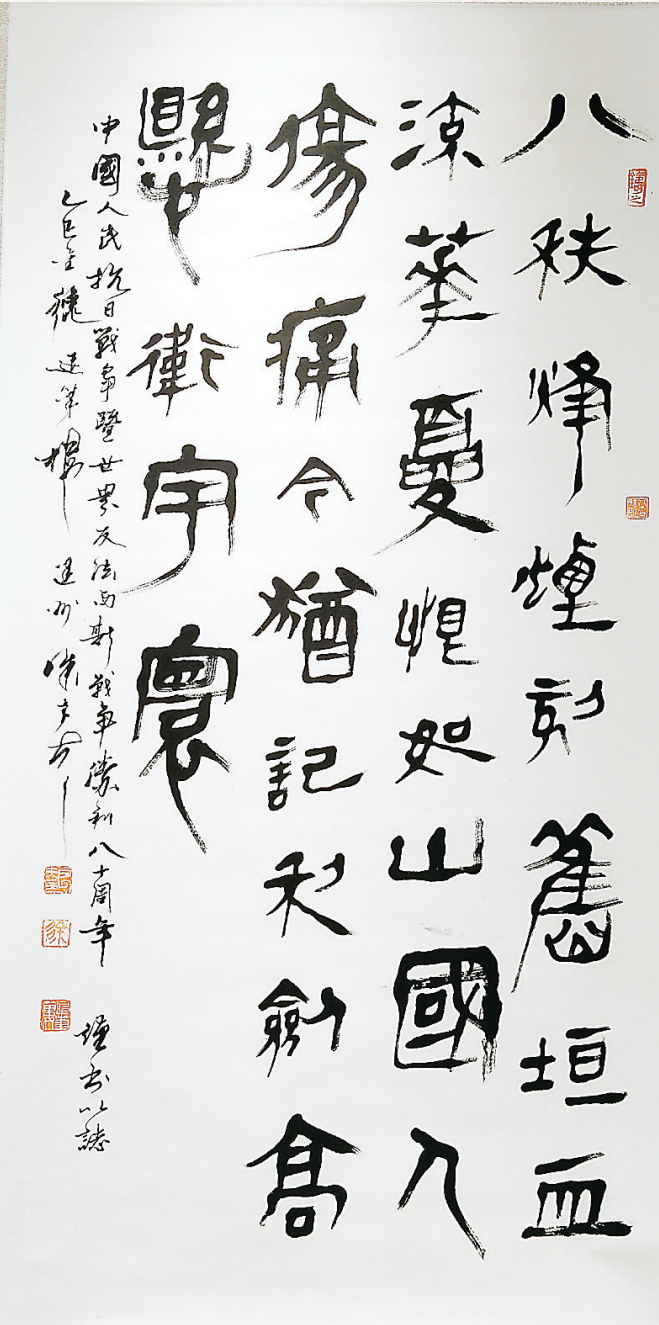 八秩烽煙刻舊垣血
涂華夏恨如山國人
傷痛今猶記利劍高
懸衛宇寰
中國人民抗日戰爭暨世界反法西斯戰爭勝利八十周年 謹書以誌
乙巳